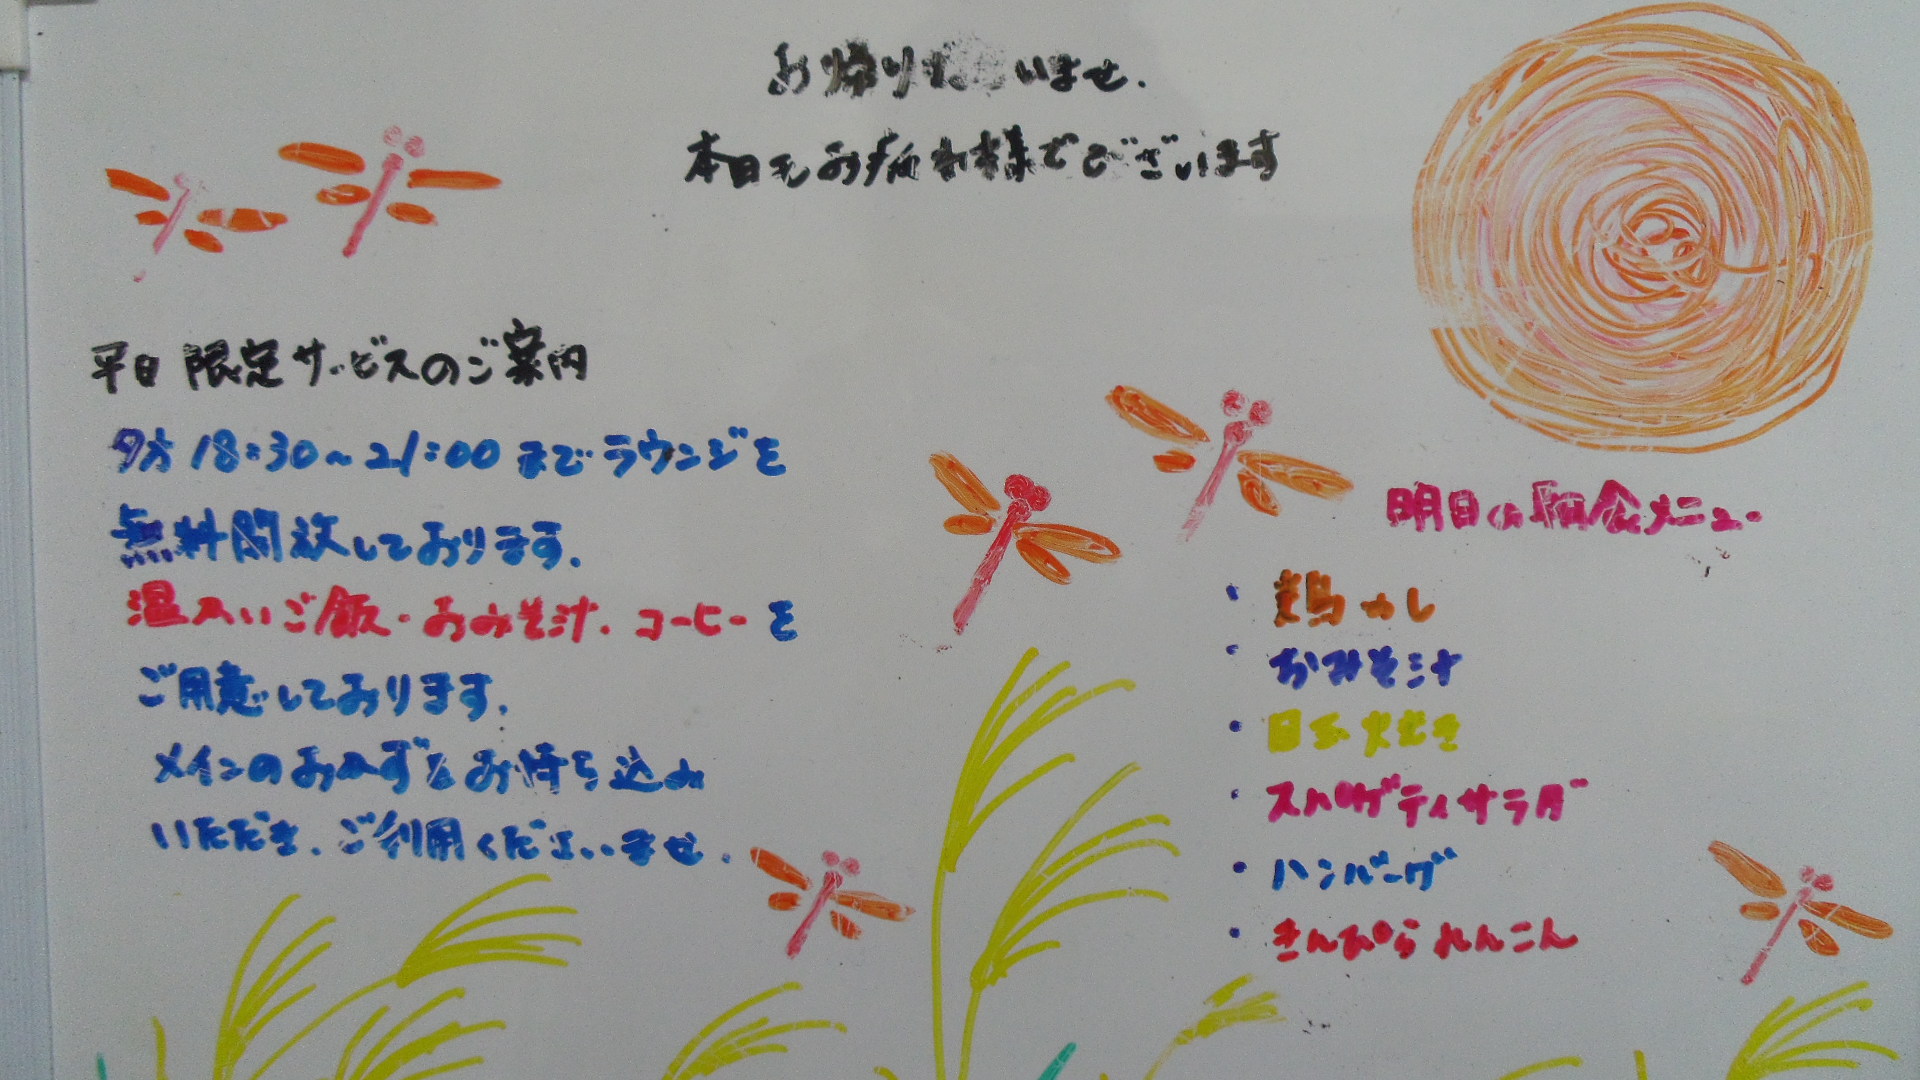 お帰りなさいませ.
本日もお疲れ様でございます
平日 限定サービスのご案内
夕方 18:30~21:00 までラウンジを
無料開放しております.
温かいご飯・おみそ汁.コーヒーを
ご用意しております.
メインのおかずをお持ち込み
いただき、ご利用くださいませ.
明日の朝食メニュー
・鶏めし
・おみそ汁
・玉子焼き
・スパゲティサラダ
・ハンバーグ
・きんぴられんこん